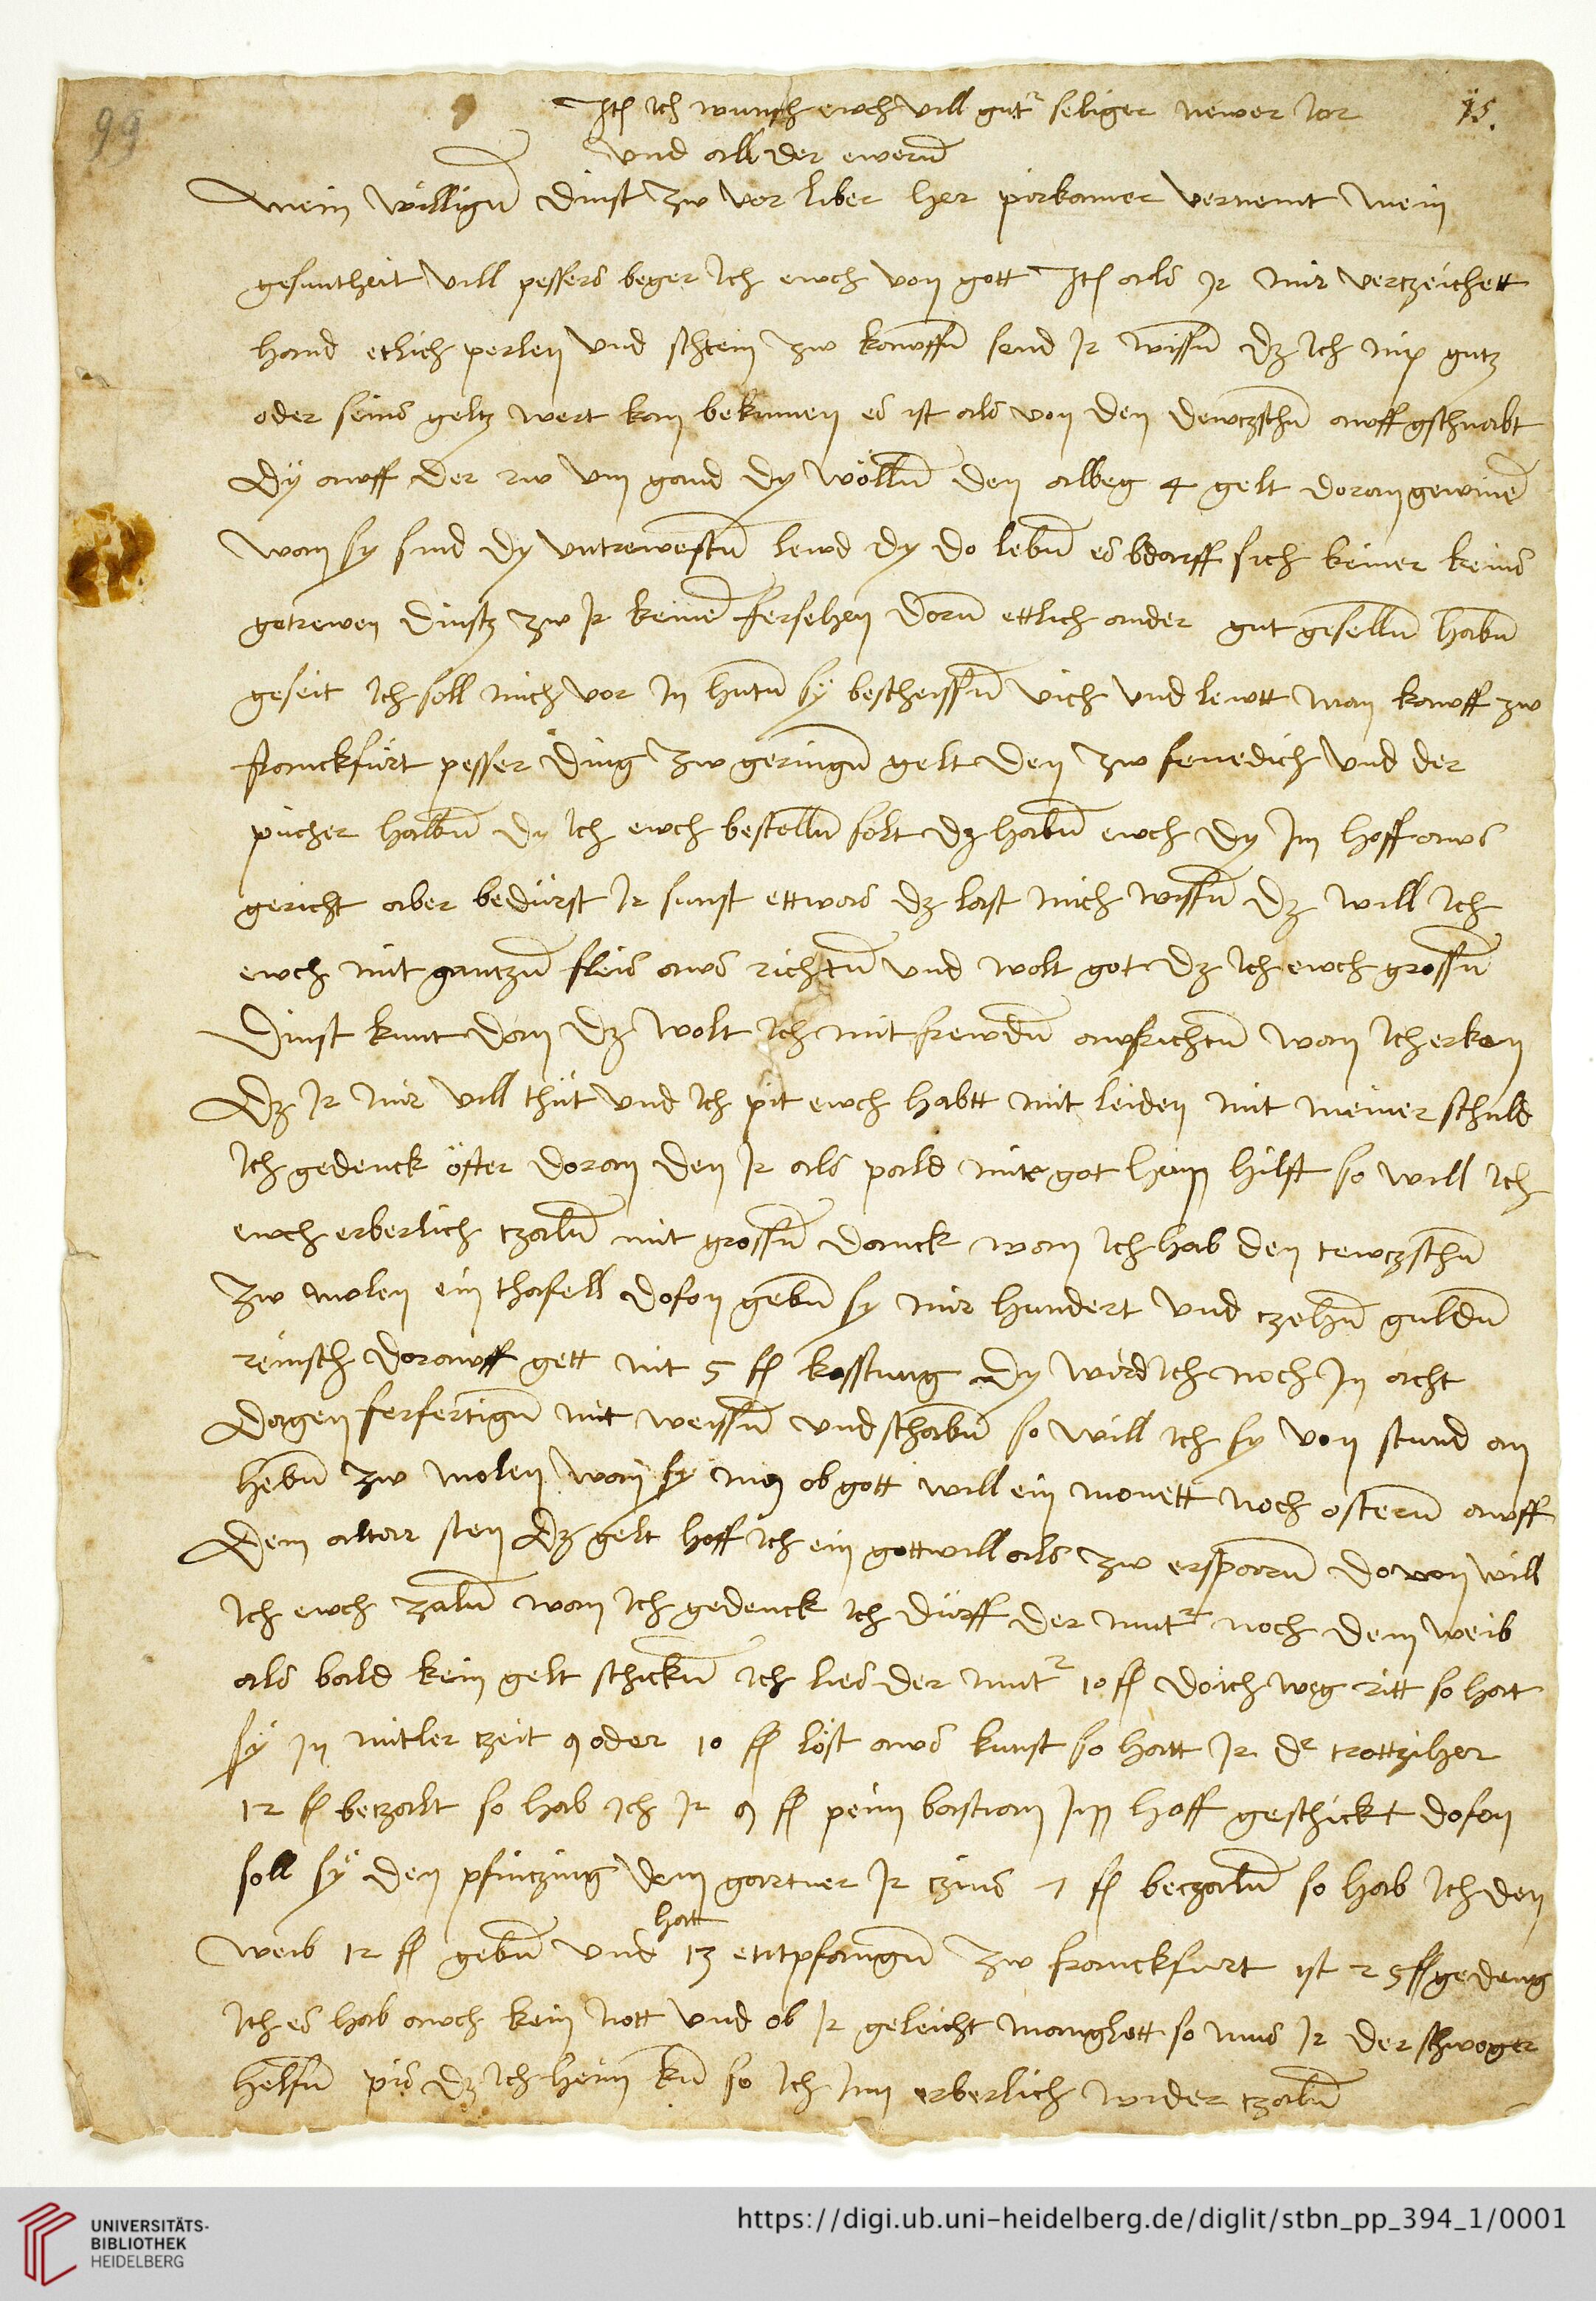 99
Itē ich wunsch ewch vill gutr seliger newer Jor
95.
und all der ewern̄
Mein willign̄ dinst zw vor liber her pirkamer vernemt mein
gesuntheit vill pessers beger ich ewch von gott Itē als Ir mir vertzeichett
hand etlich perlen und schtein zw kawffn̄ send Ir wissn̄ dz Ich nix gutz
oder seins geltz wert kan bekumen es ist als von den dewczschn̄ awff gschnabt
dÿ awff der rw um gand dy wölln̄ den albeg 4 gelt doran gewinē
wan sy sind dy untrewestn̄ lewd dy do lebn̄ es bdarff sich keiner keins
getrewen dinstz zw Ir keinē fersehen dorū ettlich ander gut geselln̄ habn̄
geseit Ich soll mich vor In hutn̄ sÿ bescheissn̄ vich und lewtt man kawff zw
franckfurt pesser ding zw geringn̄ gelt den zw fenedich und der
pücher halbn̄ dy ich ewch bestelln̄ solt dz habn̄ ewch dy Im hoff aws
gericht aber bedürst Ir sunst ettwas dz last mich wissn̄ dz will Ich
ewch mit gantzn̄ fleis aws richtn̄ und wolt got dz Ich ewch grossn̄
dinst kunt dan dz wolt ich mit frewdn̄ awsrichtn̄ wan Ich erken
dz Ir mir vill thüt und Ich pit ewch habtt mit leiden mit meiner schuld
Ich gedenck öfter doran den Ir als pald mir got heim hilft so will Ich
ewch erberlich tzaln̄ mit grossn̄ danck wan Ich hab den tewczschn̄
zw molen ein thafell dofon gebn̄ sy mir hundert und czehn̄ guldn̄
reinsch dorawff gett nit 5 fl kosstung dy wird ich noch In acht
dagen ferfertign̄ mit weissn̄ und schabn̄ so will ich sy von stund an
hebn̄ zw molen wan sy mus ob gott will ein monett noch ostern̄ awff
dem altar sten dz gelt hoff ich ein gottwill als zw ersparn̄ do von will
Ich ewch zaln̄ wan Ich gedenck ich dürff der mutr noch dem weib
als bald kein gelt schickn̄ Ich lies der mutr 10 fl do ich weg ritt so hat
sÿ In mitler czeit 9 oder 10 fl löst aws kunst so hatt Ir dr trottziher
12 fl beczalt so hab Ich Ir 9 fl peim bastian Im hoff geschickt dofon
soll sÿ den pfinczing dem gartner Ir czins 7 fl beczaln̄ so hab Ich den
weib 12 fl gebn̄ und hatt 13 entpfangn̄ zw franckfurt ist 25 fl gedeng
Ich es hab awch kein nott und ob Ir geleicht manglett so mus Ir der schwoger
helfn̄ pis dz ich heim kū so Ich Im erberlich wider czaln̄
UNIVERSITÄTS-
BIBLIOTHEK
HEIDELBERG
https://digi.ub.uni-heidelberg.de/diglit/stbn_pp_394_1/0001